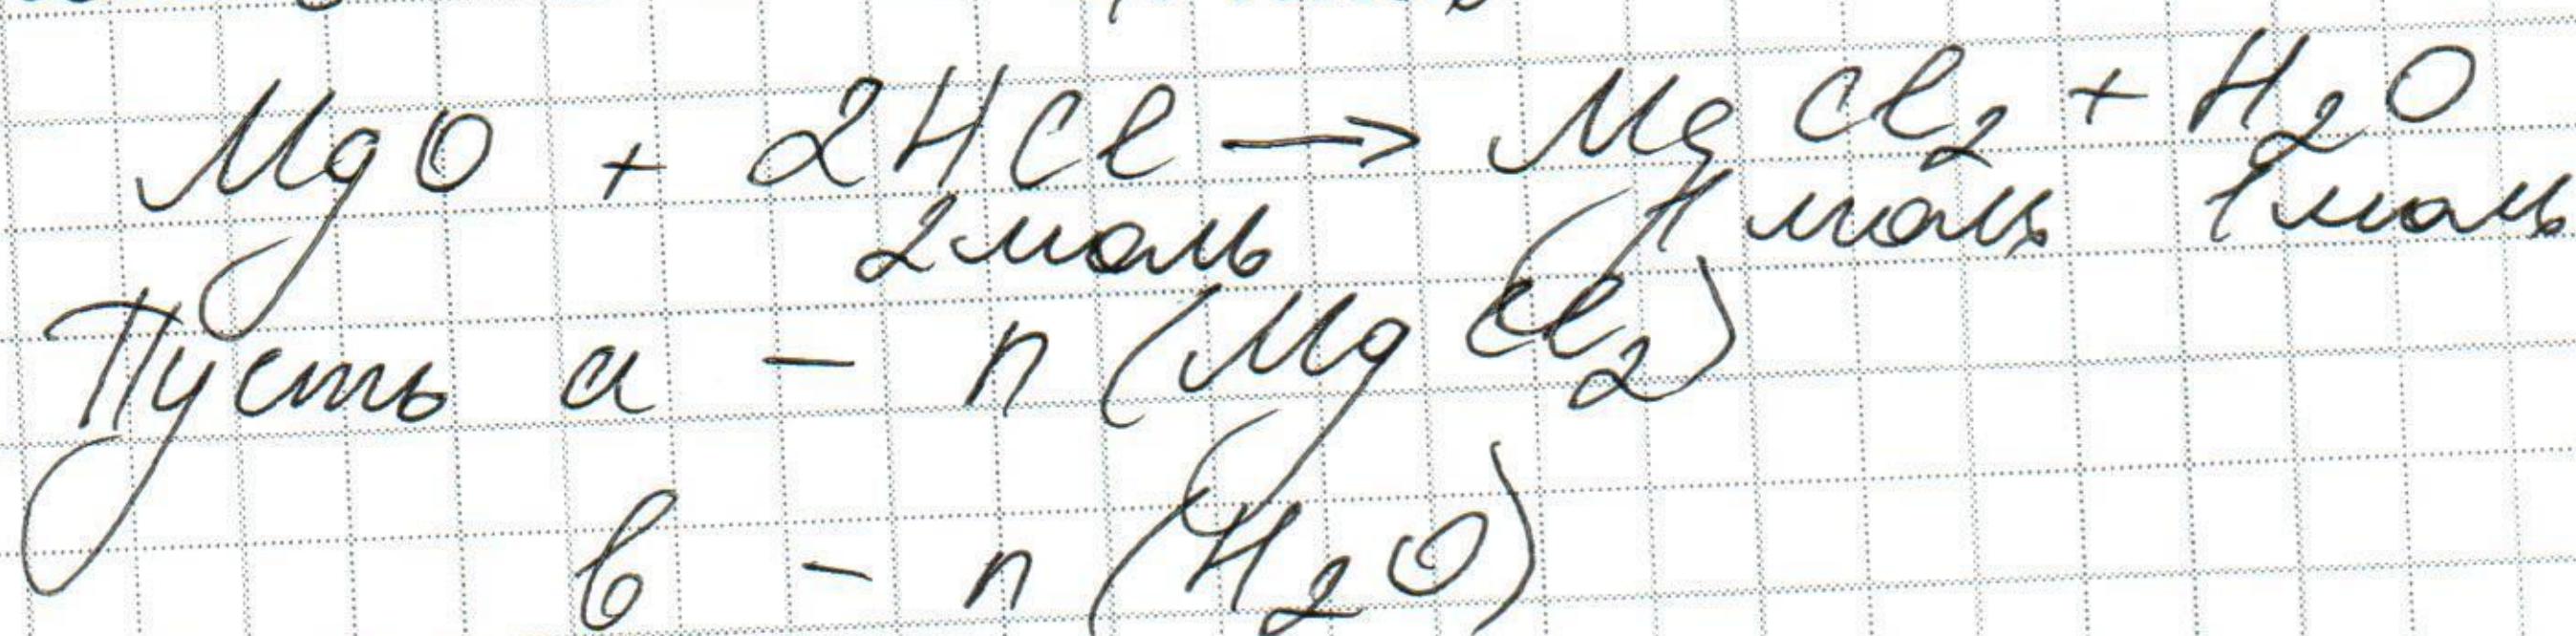 MgO + 2HCl → MgCl₂ + H₂O
2моль 1 моль 1моль
Пусть а - n (MgCl₂)
в - n (H₂O)